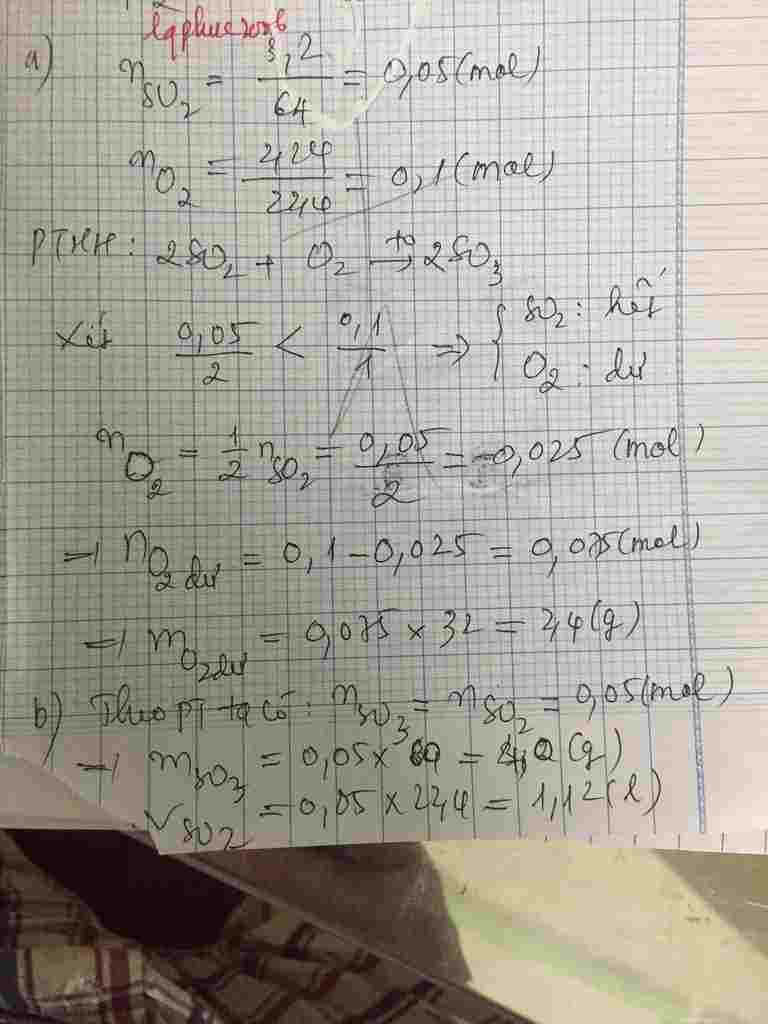 lqphuc2006
a) nSO2 = 3,2/64 = 0,05 (mol)
nO2 = 2,24/22,4 = 0,1 (mol)
PTHH: 2SO2 + O2 →to 2SO3
Xét 0,05/2 < 0,1/1 => { SO2: hết
O2: dư
nO2 = 1/2 nSO2 = 0,05/2 = 0,025 (mol)
→ nO2 dư = 0,1 - 0,025 = 0,075 (mol)
→ mO2 dư = 0,075 × 32 = 2,4 (g)
b) Theo pt ta có: nSO3 = nSO2 = 0,05 (mol)
→ mSO3 = 0,05 × 80 = 4,0 (g)
VSO2 = 0,05 × 22,4 = 1,12 (l)